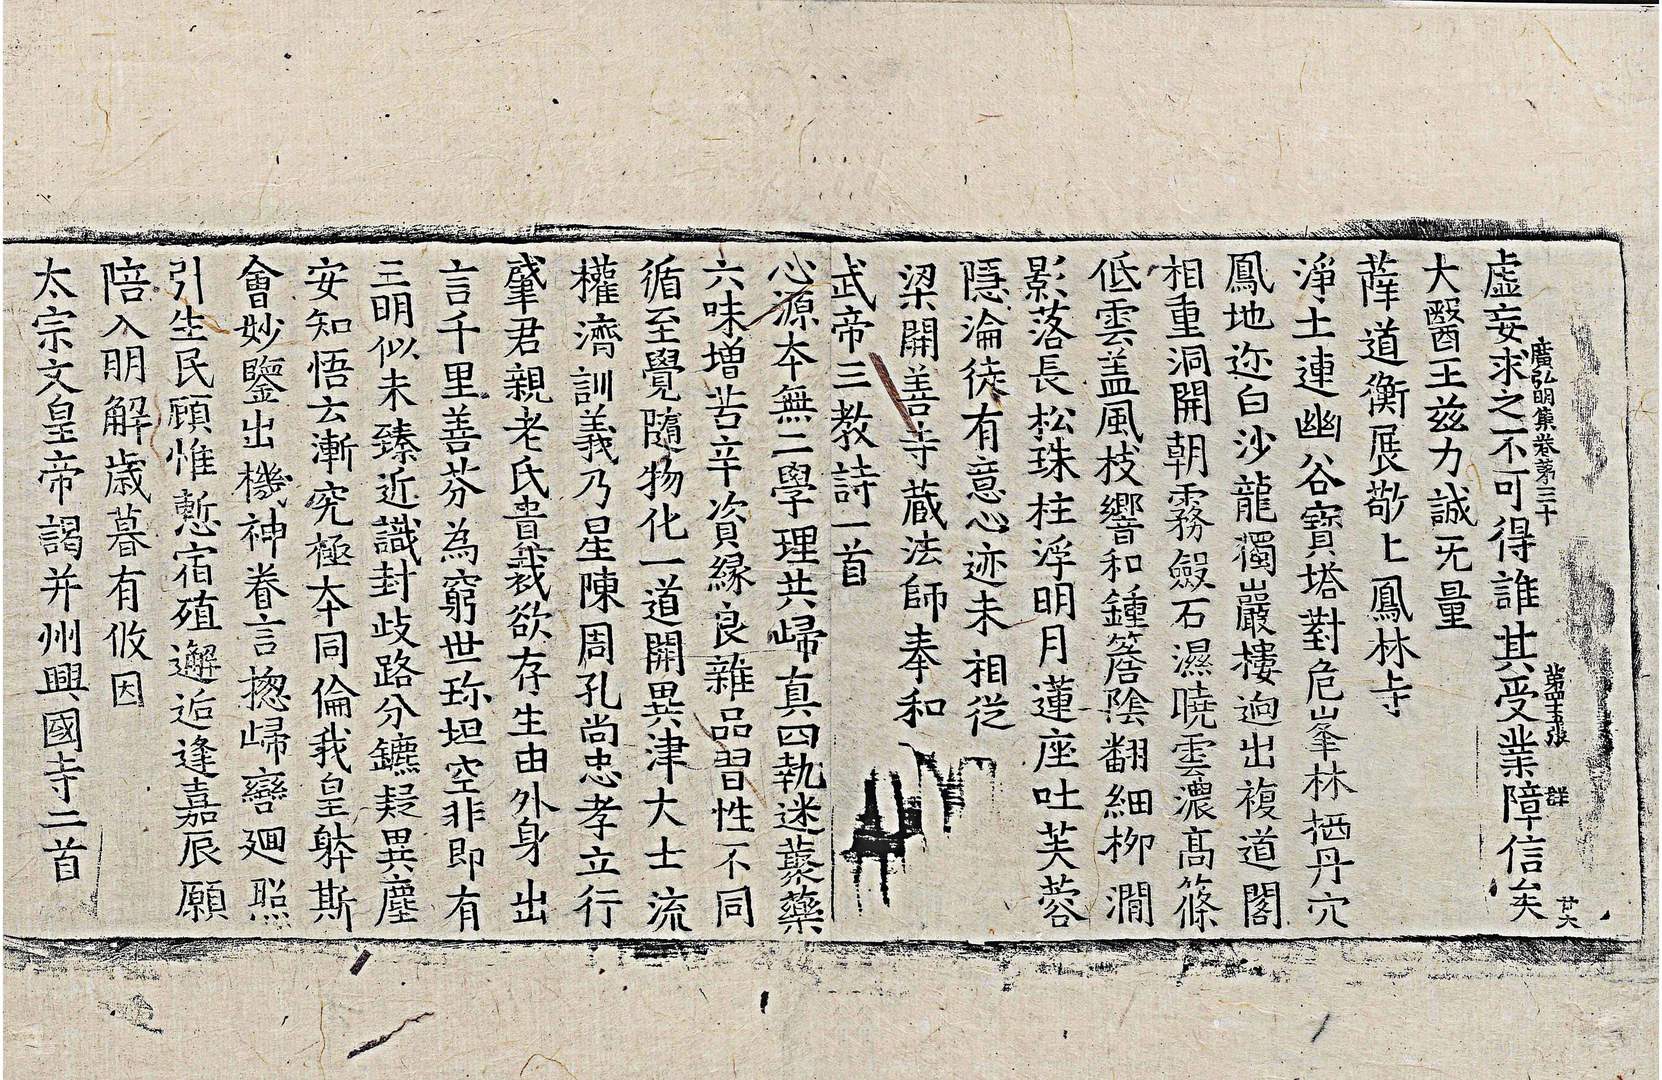 虛妄求之不可得誰其受業障信矣
廣弘明集卷苐三十 苐四十五張 群 廿六
大醫王兹力誠无量
薛道衡展敬上鳳林寺
淨土連幽谷寶塔對危峯林栖丹穴
鳳地迩白沙龍獨巖樓逈出複道閣
相重洞開朝霧斂石濕曉雲濃髙篠
低雲盖風枝響和鍾簷陰翻細栁澗
影落長松珠柱浮明月蓮座吐芙蓉
隱淪徒有意心迹未相從
梁開善寺蔵法師奉和
武帝三教詩一首
心源本無二學理共歸真四執迷藂藥
六味增苦辛資縁良雜品習性不同
循至覺隨物化一道開異津大士流
權濟訓義乃星陳周孔尚忠孝立行
肇君親老氏貴裁欲存生由外身出
言千里善芬為窮世珎坦空非即有
三明似未臻近識封歧路分鑣疑異塵
安知悟云漸究極本同倫我皇躰斯
會妙鑒出機神眷言揔歸轡廻照
引生民顧惟慙宿殖邂逅逢嘉辰願
陪入明解歳暮有攸因
太宗文皇帝謁并州興國寺二首